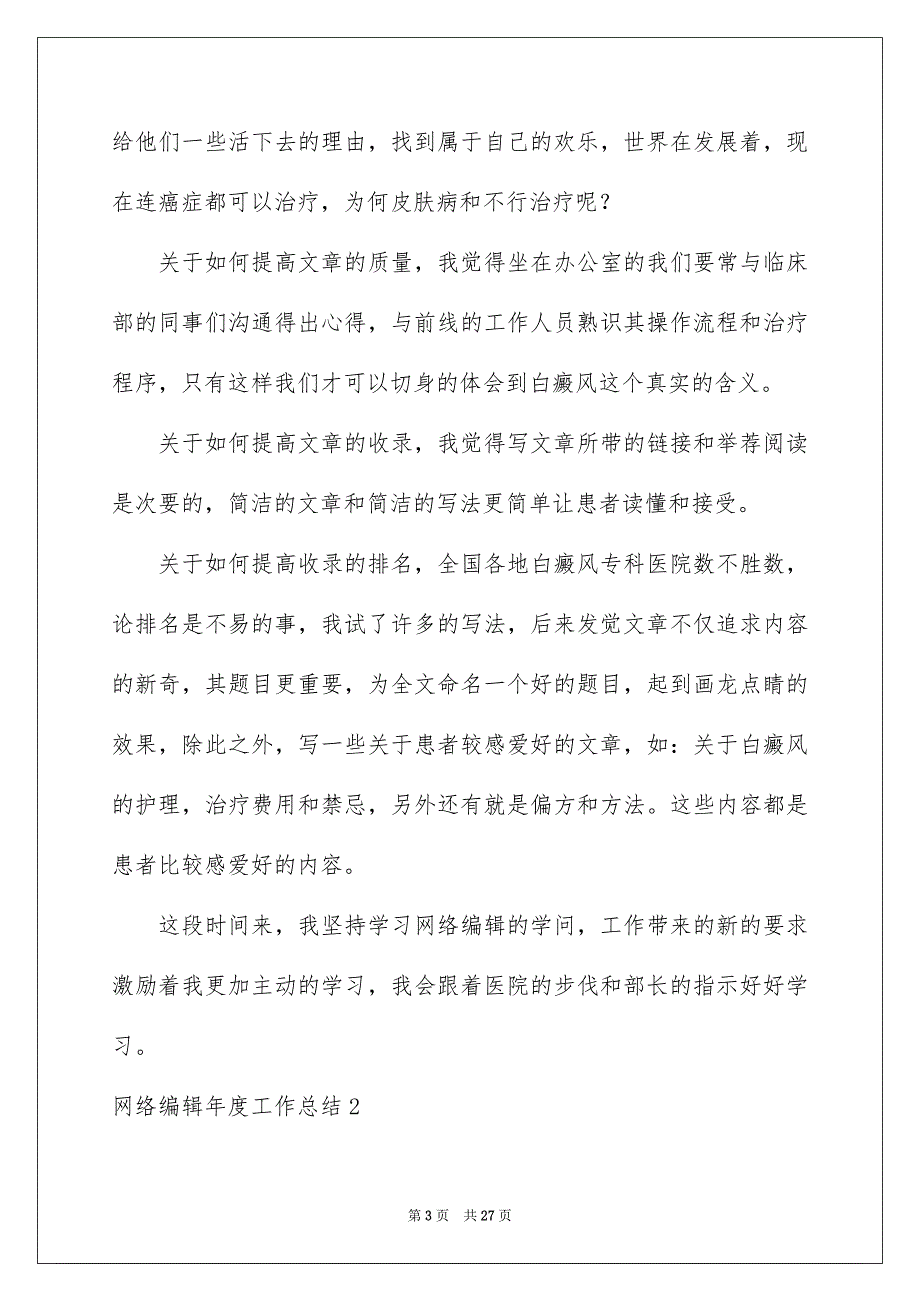 给他们一些活下去的理由，找到属于自己的欢乐，世界在发展着，现
在连癌症都可以治疗，为何皮肤病和不行治疗呢？
关于如何提高文章的质量，我觉得坐在办公室的我们要常与临床
部的同事们沟通得出心得，与前线的工作人员熟识其操作流程和治疗
程序，只有这样我们才可以切身的体会到白癜风这个真实的含义。
关于如何提高文章的收录，我觉得写文章所带的链接和举荐阅读
是次要的，简洁的文章和简洁的写法更简单让患者读懂和接受。
关于如何提高收录的排名，全国各地白癜风专科医院数不胜数，
论排名是不易的事，我试了许多的写法，后来发觉文章不仅追求内容
的新奇，其题目更重要，为全文命名一个好的题目，起到画龙点睛的
效果，除此之外，写一些关于患者较感爱好的文章，如：关于白癜风
的护理，治疗费用和禁忌，另外还有就是偏方和方法。这些内容都是
患者比较感爱好的内容。
这段时间来，我坚持学习网络编辑的学问，工作带来的新的要求
激励着我更加主动的学习，我会跟着医院的步伐和部长的指示好好学
习。
网络编辑年度工作总结 2
第 3 页 共 27 页